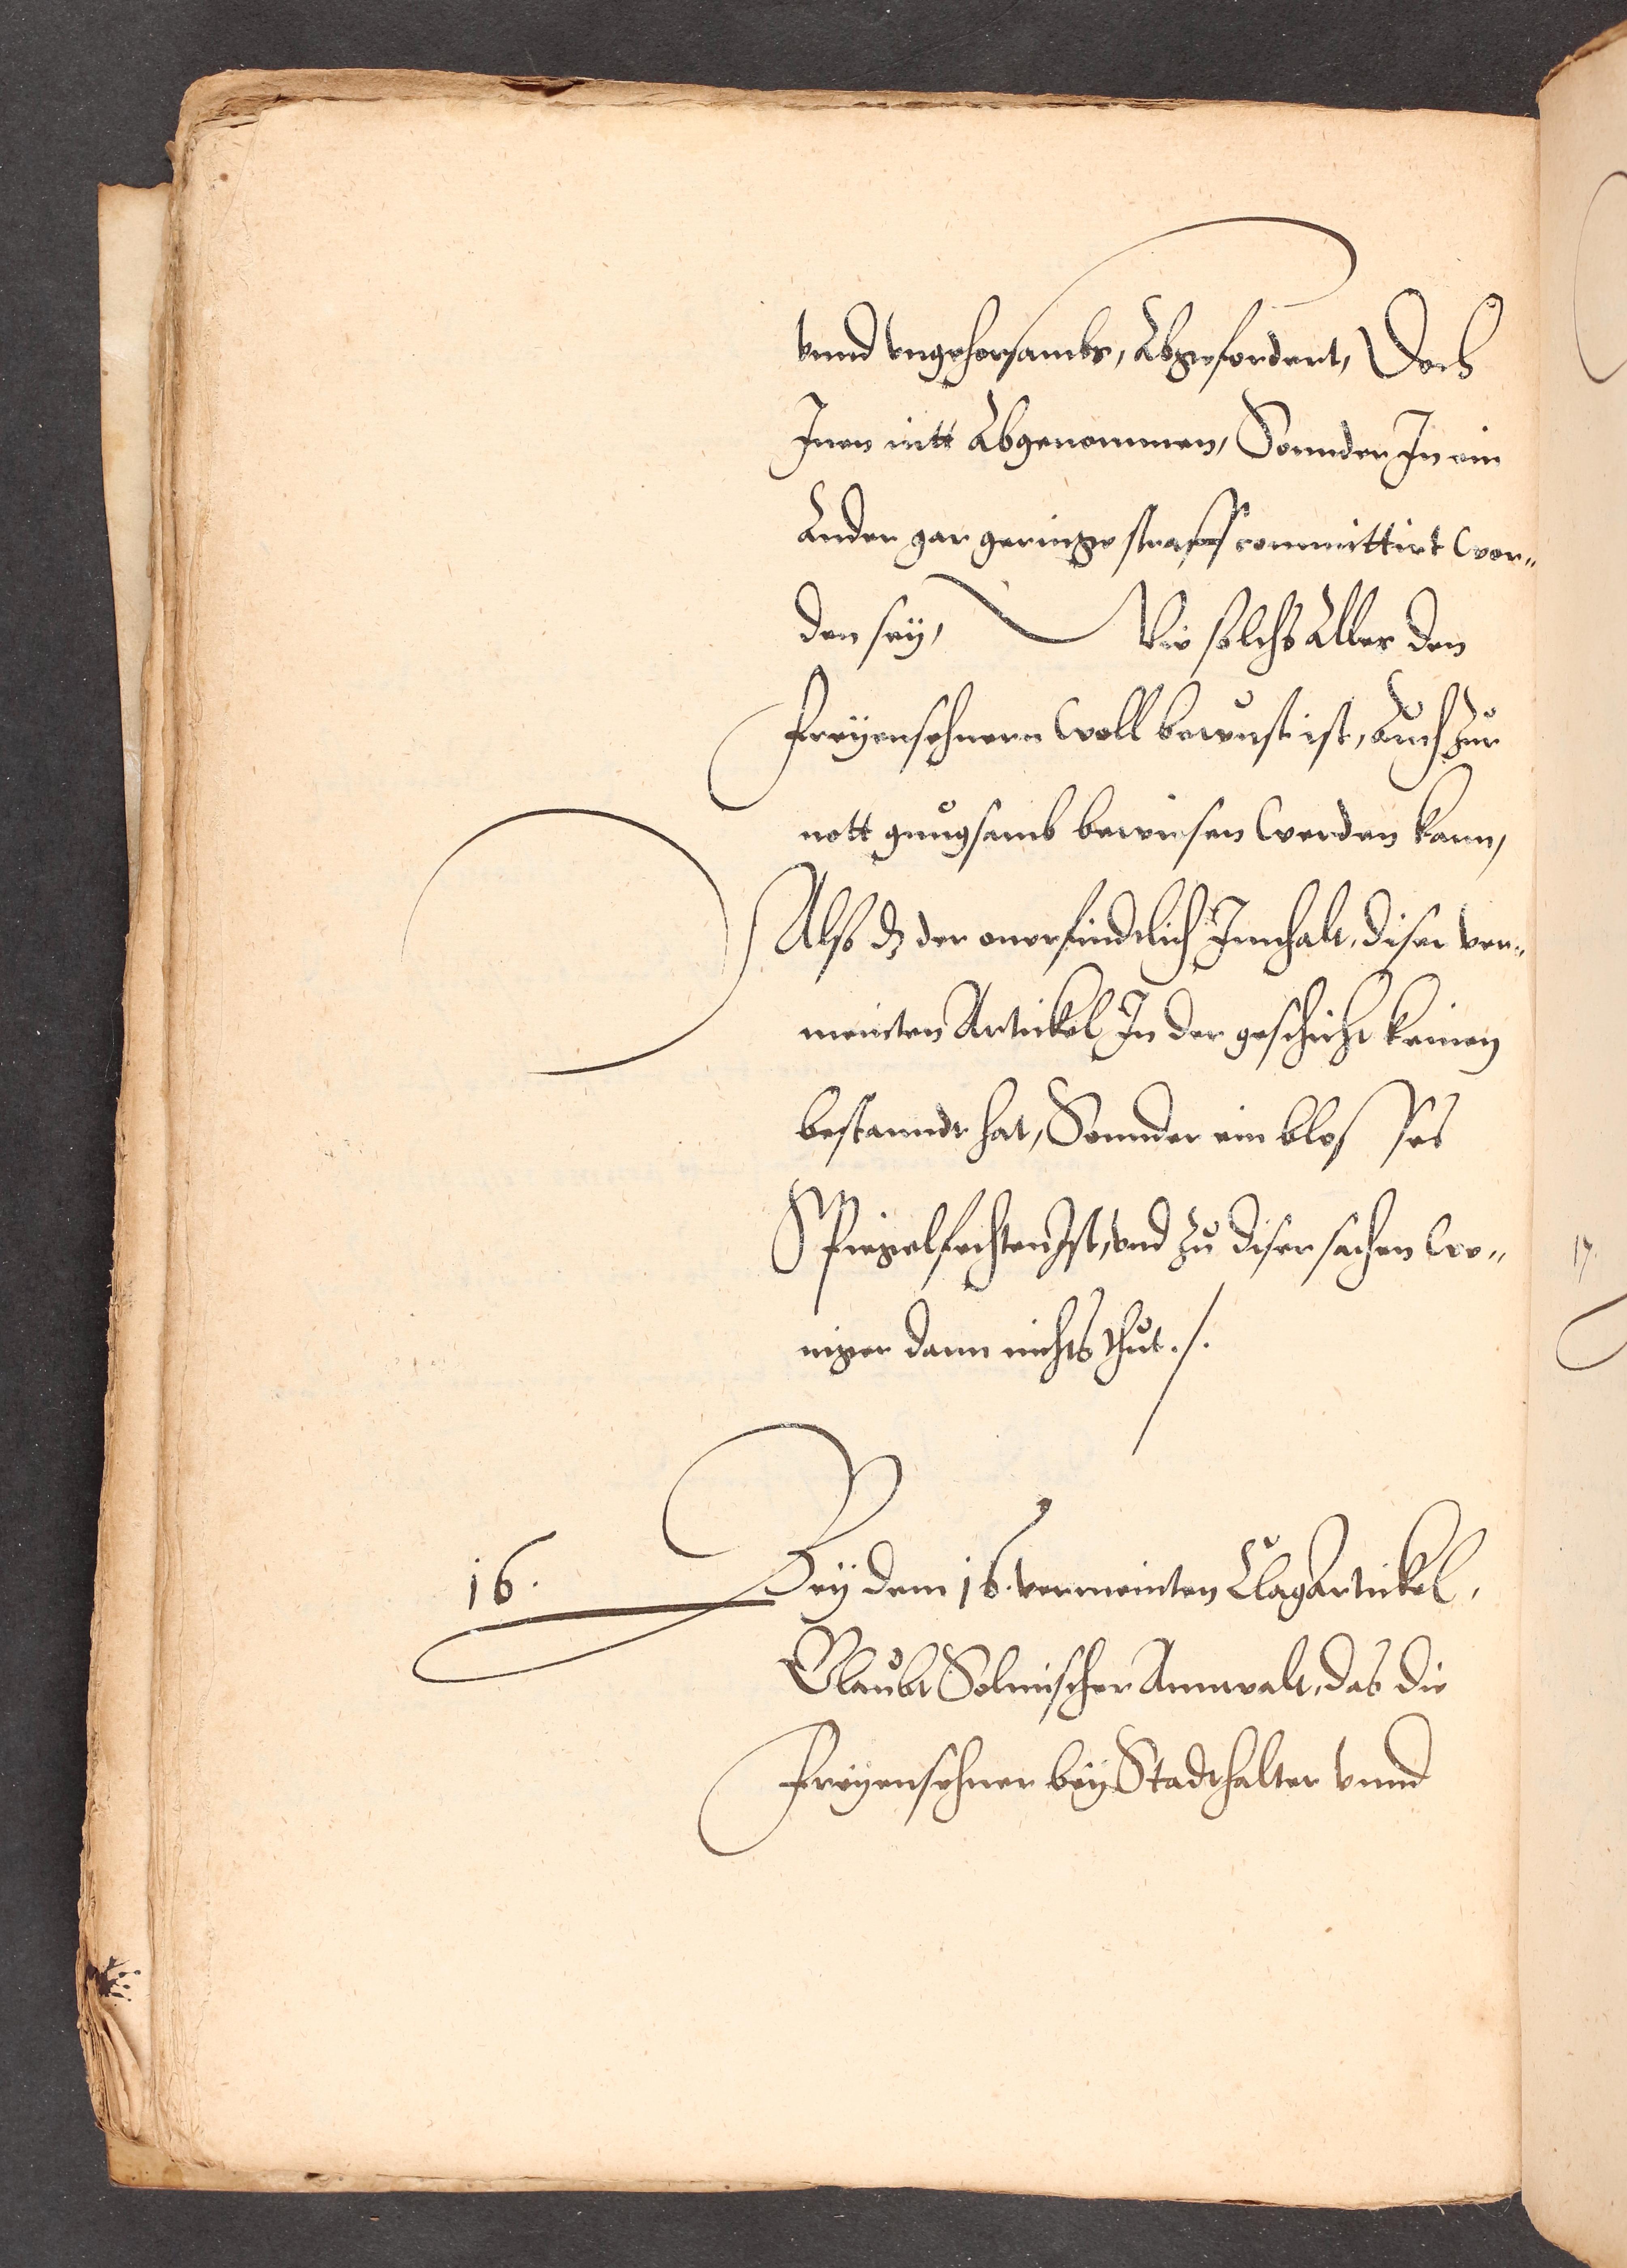 vnnd vngehorsambs, Abgefordert, Doch
Inen nitt Abgenommen, Sonnder In ein
Ander gar geringe straff committirt wor„
den sey, Wie solchs Alles den
Freyensehnern woll bewust ist, Auch zur
nott gnugsamb bewisen werden kann,
Also dz der onerfindtlich Innhalt, diser ver„
meinten Artickel In der geschicht keinen
bestanndt hat, Sonnder ein blosses
Spiegelfechten Ist, vnd zu diser sachen we„
niger dann nichts thut ./.
16. Bey dem 16. vermeinten ClagArtickel,
Glaubt Solmischer Annwalt, das die
Freyensehner bey Stadthalter vnnd
17.